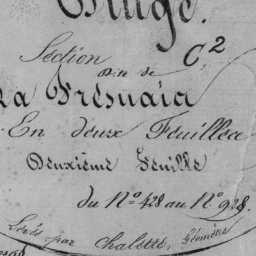 Section C.2
Dite de
La Fresnaia
En deux Feuilles
Deuxième Feuille
du N° 428 au N° 928.
Levés par Chalette, Géomètre